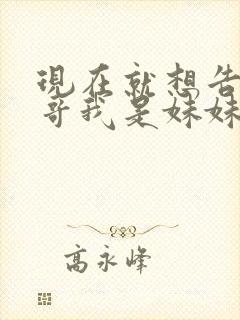 現在就想告
哥我是妹妹
高永峰